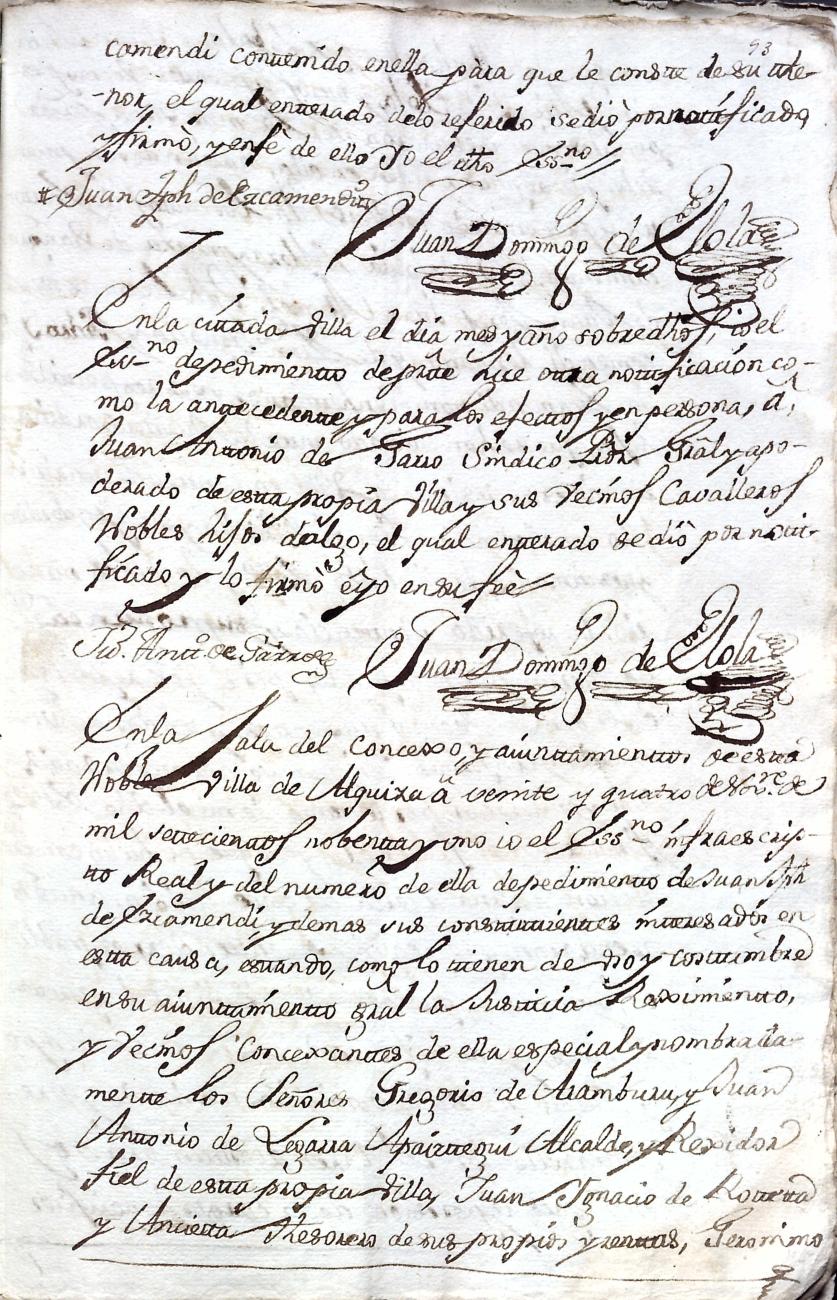 93
camendi contenido enella pàra que le conste de su the-
-nor, el qual enterado delo referido se diò por notificado,
y firmò, y en fè de ello Yo el dho Essno //
# Juan Jph de Ezcamendi
Juan Domingo de Olola
Enla citada Villa el dia mes y año sobredhos, io el
Essno de pedimiento de parte hice otra notificación co-
mo la antecedente y para los efectos y en persona, á,
Juan Antonio de Garro Sindico Pror Gral y apo-
derado de esta propia Villa y sus Vecinos Cavalleros
Nobles hijos dealgo, el qual enterado se diò por noti-
ficado y lo firmò è yo en su feè
Jun. Antto. de Garro
Juan Domingo de Olola
Enla Sala del Concexo, y aiuntamientto de esta
Noble Villa de Alquiza â veinte y quatro de Novre. de
mil settecienttos nobenta y uno io el Essno infraescrip-
tto Real y del numero de ella de pedimiento de Juan Jph
de Ezcamendi y demas sus constituientes intteresados en
esta causa, estando, como lo tienen de uso y costumbre
en su aiuntamientto gral la Justicia Reximientto,
y Vecinos Concexantes de ella especial y nombrada-
mente los Señores Gregorio de Aramburu, y Juan
Antonio de Legarra Apaizttegui Alcalde, y Rexidor
fiel de esta propia Villa, Juan Ignacio de Rotteta
y Ancietta Thesorero de sus propios y renttas, Geronimo